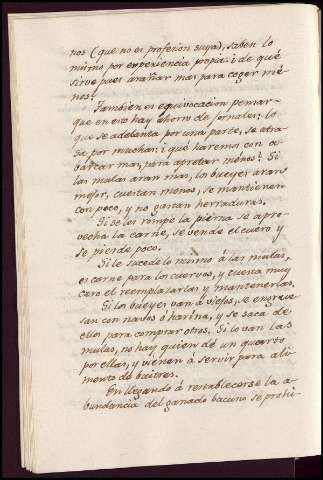 nos (que no es profesion suya), saben lo
mismo por experiencia propia: ¿de qué
sirve pues arañar mas para coger mé-
nos?
Tambien es equivocacion pensar
que en eso hay ahorro de jornales: lo
que se adelanta por una parte, se atra-
sa por muchas: ¿qué haremos con a-
barcar mas, para apretar ménos? Si
las mulas aran mas, los bueyes aran
mejor, cuestan menos, se mantienen
con poco, y no gastan herraduras.
Si se les rompe la pierna se apro-
vecha la carne, se vende el cuero y
se pierde poco.
Si le sucede lo mismo á las mulas,
es carne para los cuervos, y cuesta muy
caro el reemplazarlas y mantenerlas.
Si los bueyes van á viejos, se engruе-
san con navos ó harina, y se saca de
ellos para comprar otros. Si lo van las
mulas, no hay quien dé un quarto
por ellas, y vienen á servir para ali-
mento de buitres.
En llegando á restablecerse la a-
bundancia del ganado bacuno se prohi-